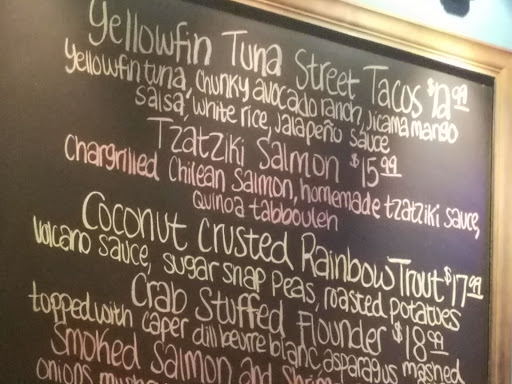 Yellowfin Tuna Street Tacos $12.99
Yellowfin tuna, chunky avocado ranch, jicama mango
salsa, white rice, jalapeño sauce
Tzatziki Salmon $15.99
Chargrilled Chilean Salmon, homemade tzatziki sauce,
quinoa tabbouleh
Coconut Crusted Rainbow Trout $17.99
Volcano sauce, sugar snap peas, roasted potatoes
Crab Stuffed Flounder $18.99
topped with caper dill beurre blanc, asparagus, mashed
Smoked Salmon and
onions,